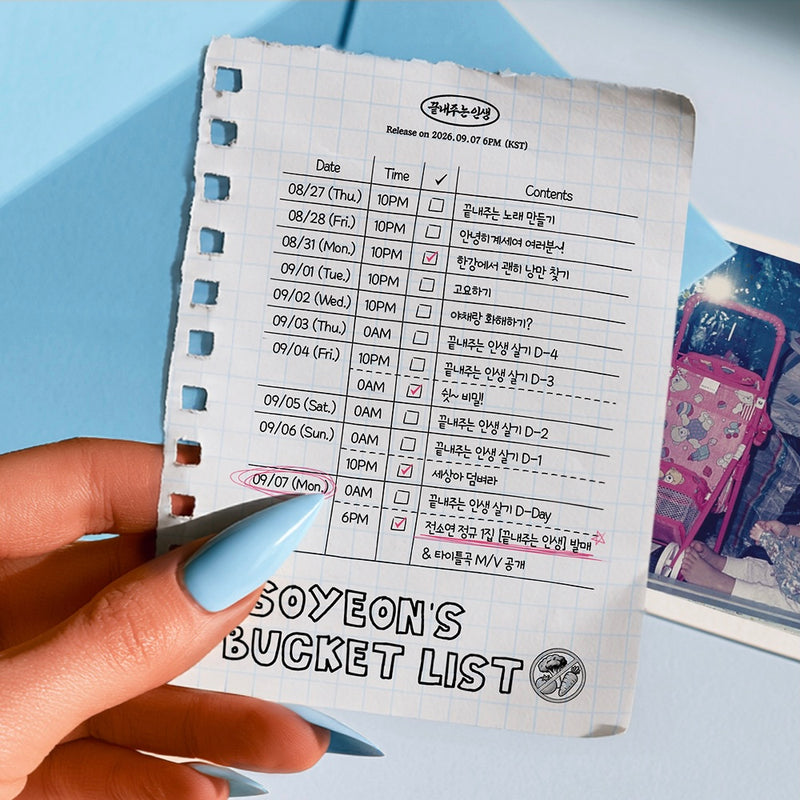 끝내주는 인생
Release on 2026.09.07 6PM (KST)
Date Time ✓ Contents
08/27 (Thu.) 10PM 끝내주는 노래 만들기
08/28 (Fri.) 10PM 안녕히계세여 여러분~!
08/31 (Mon.) 10PM 한강에서 괜히 낭만 찾기
09/01 (Tue.) 10PM 고요하기
09/02 (Wed.) 10PM 야채랑 화해하기?
09/03 (Thu.) 0AM 끝내주는 인생 살기 D-4
09/04 (Fri.) 10PM 끝내주는 인생 살기 D-3
0AM 쉿~ 비밀!
09/05 (Sat.) 0AM 끝내주는 인생 살기 D-2
09/06 (Sun.) 0AM 끝내주는 인생 살기 D-1
10PM 세상아 덤벼라
09/07 (Mon.) 0AM 끝내주는 인생 살기 D-Day
6PM 전소연 정규 1집 [끝내주는 인생] 발매
& 타이틀곡 M/V 공개
SOYEON'S
BUCKET LIST